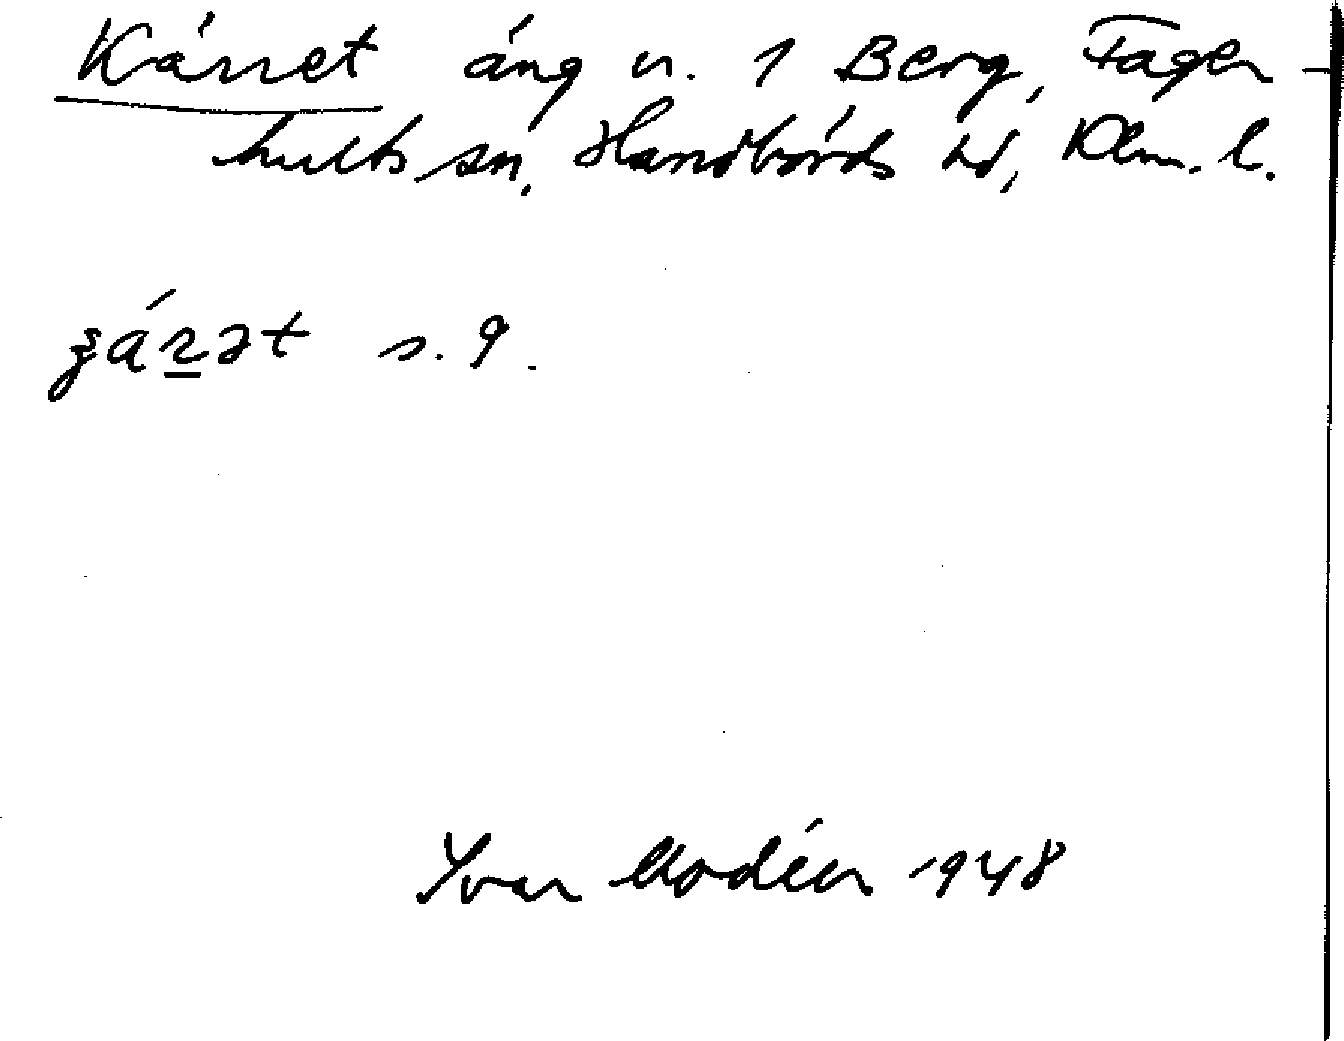 Kärret äng n. 1 Berg, Fager-
hults sn, Handbörds hd, Klm. l.
s. 9.
Yvar Modéer 1948